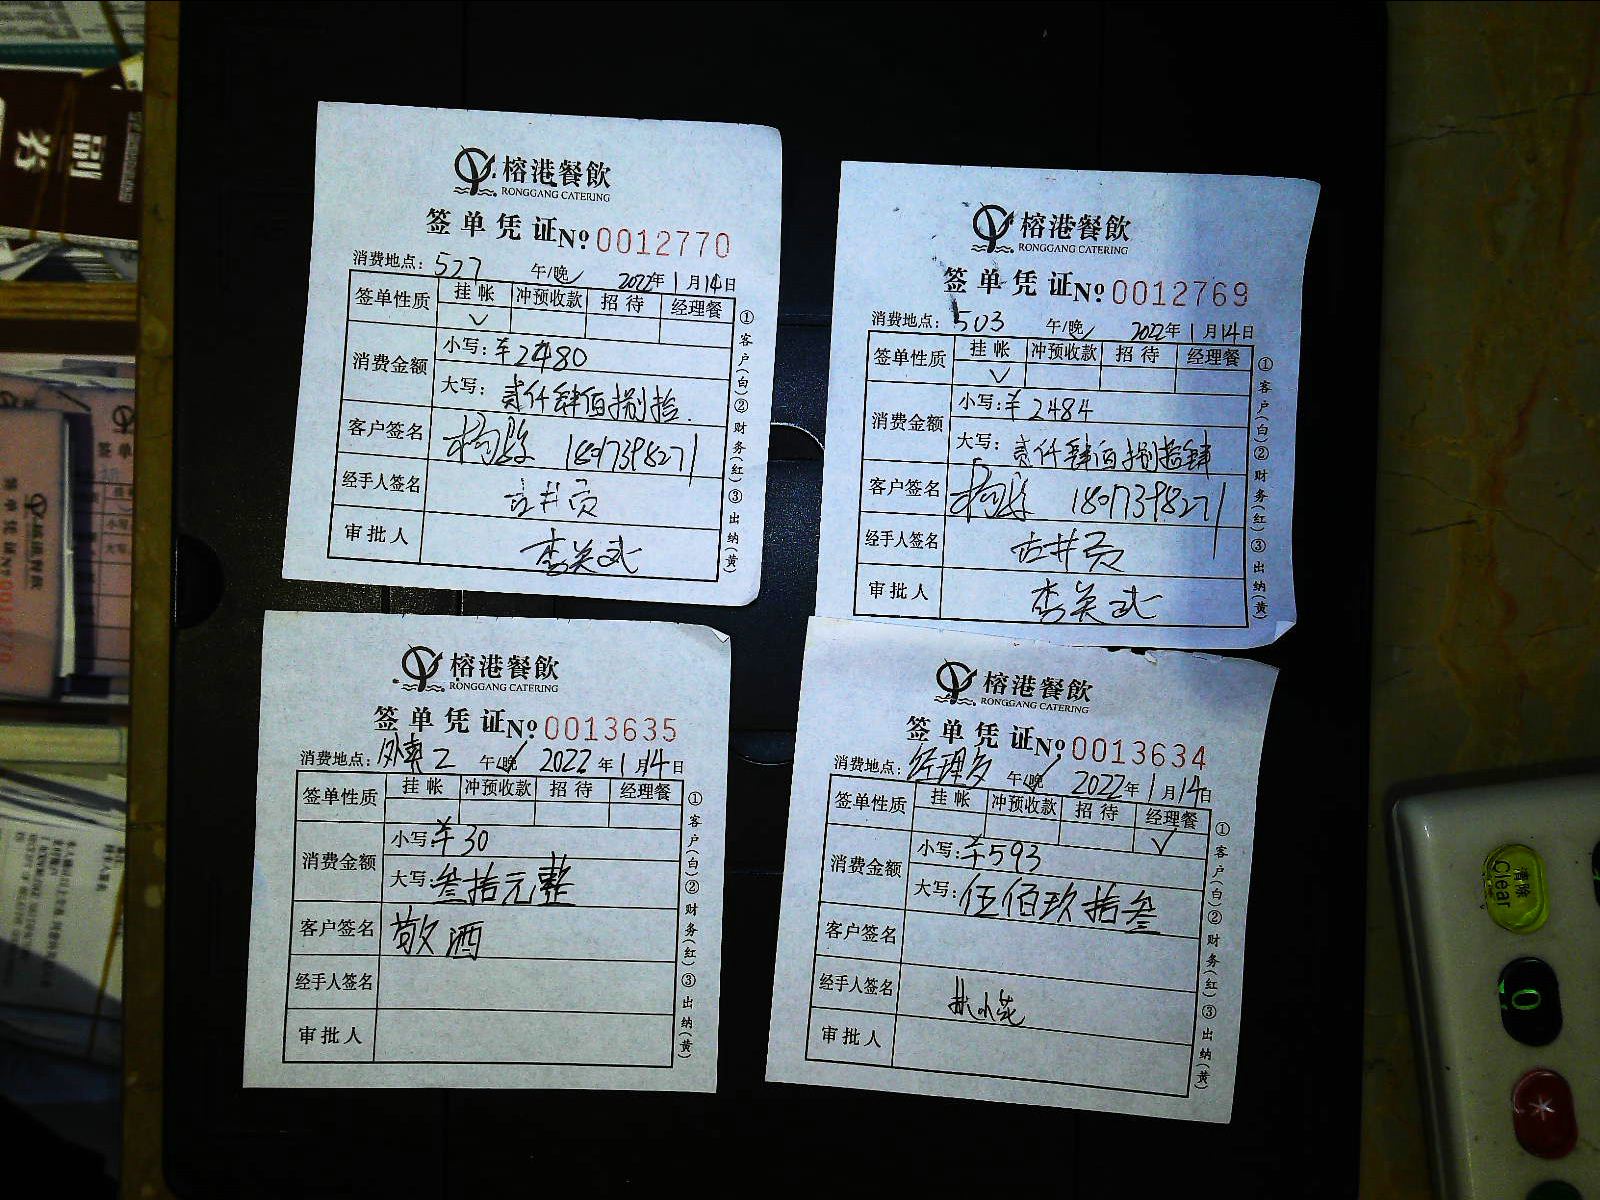 榕港餐飲
RONGGANG CATERING
签单凭证 №0012770
消费地点: 527 午/晚 2022年1月14日
签单性质 挂帐 冲预收款 招待 经理餐
✓
消费金额 小写: ¥2480
大写: 贰仟肆佰捌拾
客户签名 18017398271
经手人签名
审批人
①客户(白)②财务(红)③出纳(黄)
榕港餐飲
RONGGANG CATERING
签单凭证 №0012769
消费地点: 503 午/晚 2022年1月14日
签单性质 挂帐 冲预收款 招待 经理餐
✓
消费金额 小写: ¥2484
大写: 贰仟肆佰捌拾肆
客户签名 18017398271
经手人签名
审批人
①客户(白)②财务(红)③出纳(黄)
榕港餐飲
RONGGANG CATERING
签单凭证 №0013635
消费地点: 外卖2 午/晚 2022年1月14日
签单性质 挂帐 冲预收款 招待 经理餐
消费金额 小写: ¥30
大写: 叁拾元整
客户签名 敬酒
经手人签名
审批人
①客户(白)②财务(红)③出纳(黄)
榕港餐飲
RONGGANG CATERING
签单凭证 №0013634
消费地点: 经理 午/晚 2022年1月14日
签单性质 挂帐 冲预收款 招待 经理餐
✓
消费金额 小写: ¥593
大写: 伍佰玖拾叁
客户签名
经手人签名
审批人
①客户(白)②财务(红)③出纳(黄)
清除
Clear
0
*